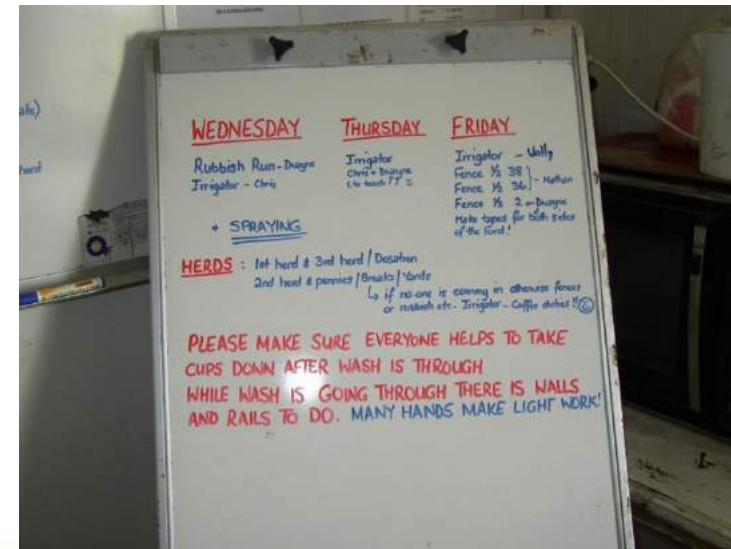 WEDNESDAY THURSDAY FRIDAY
Rubbish Run - Dwayne
Irrigator - Chris
+ SPRAYING
Irrigator
Chris + Dwayne
(to teach!!
Irrigator - Wally
Fence 1/2 38
Fence 1/2 36 - Nathan
Fence 1/2 2 - Dwayne
Make tapes for both sides
of the ford!
HERDS : 1st herd & 3rd herd / Dosatron
2nd herd & pennies / Breaks / Yards
if no-one is coming in otherwise fences
or rubbish etc - Irrigator - Coffee duties!!
PLEASE MAKE SURE EVERYONE HELPS TO TAKE
CUPS DOWN AFTER WASH IS THROUGH
WHILE WASH IS GOING THROUGH THERE IS WALLS
AND RAILS TO DO. MANY HANDS MAKE LIGHT WORK!